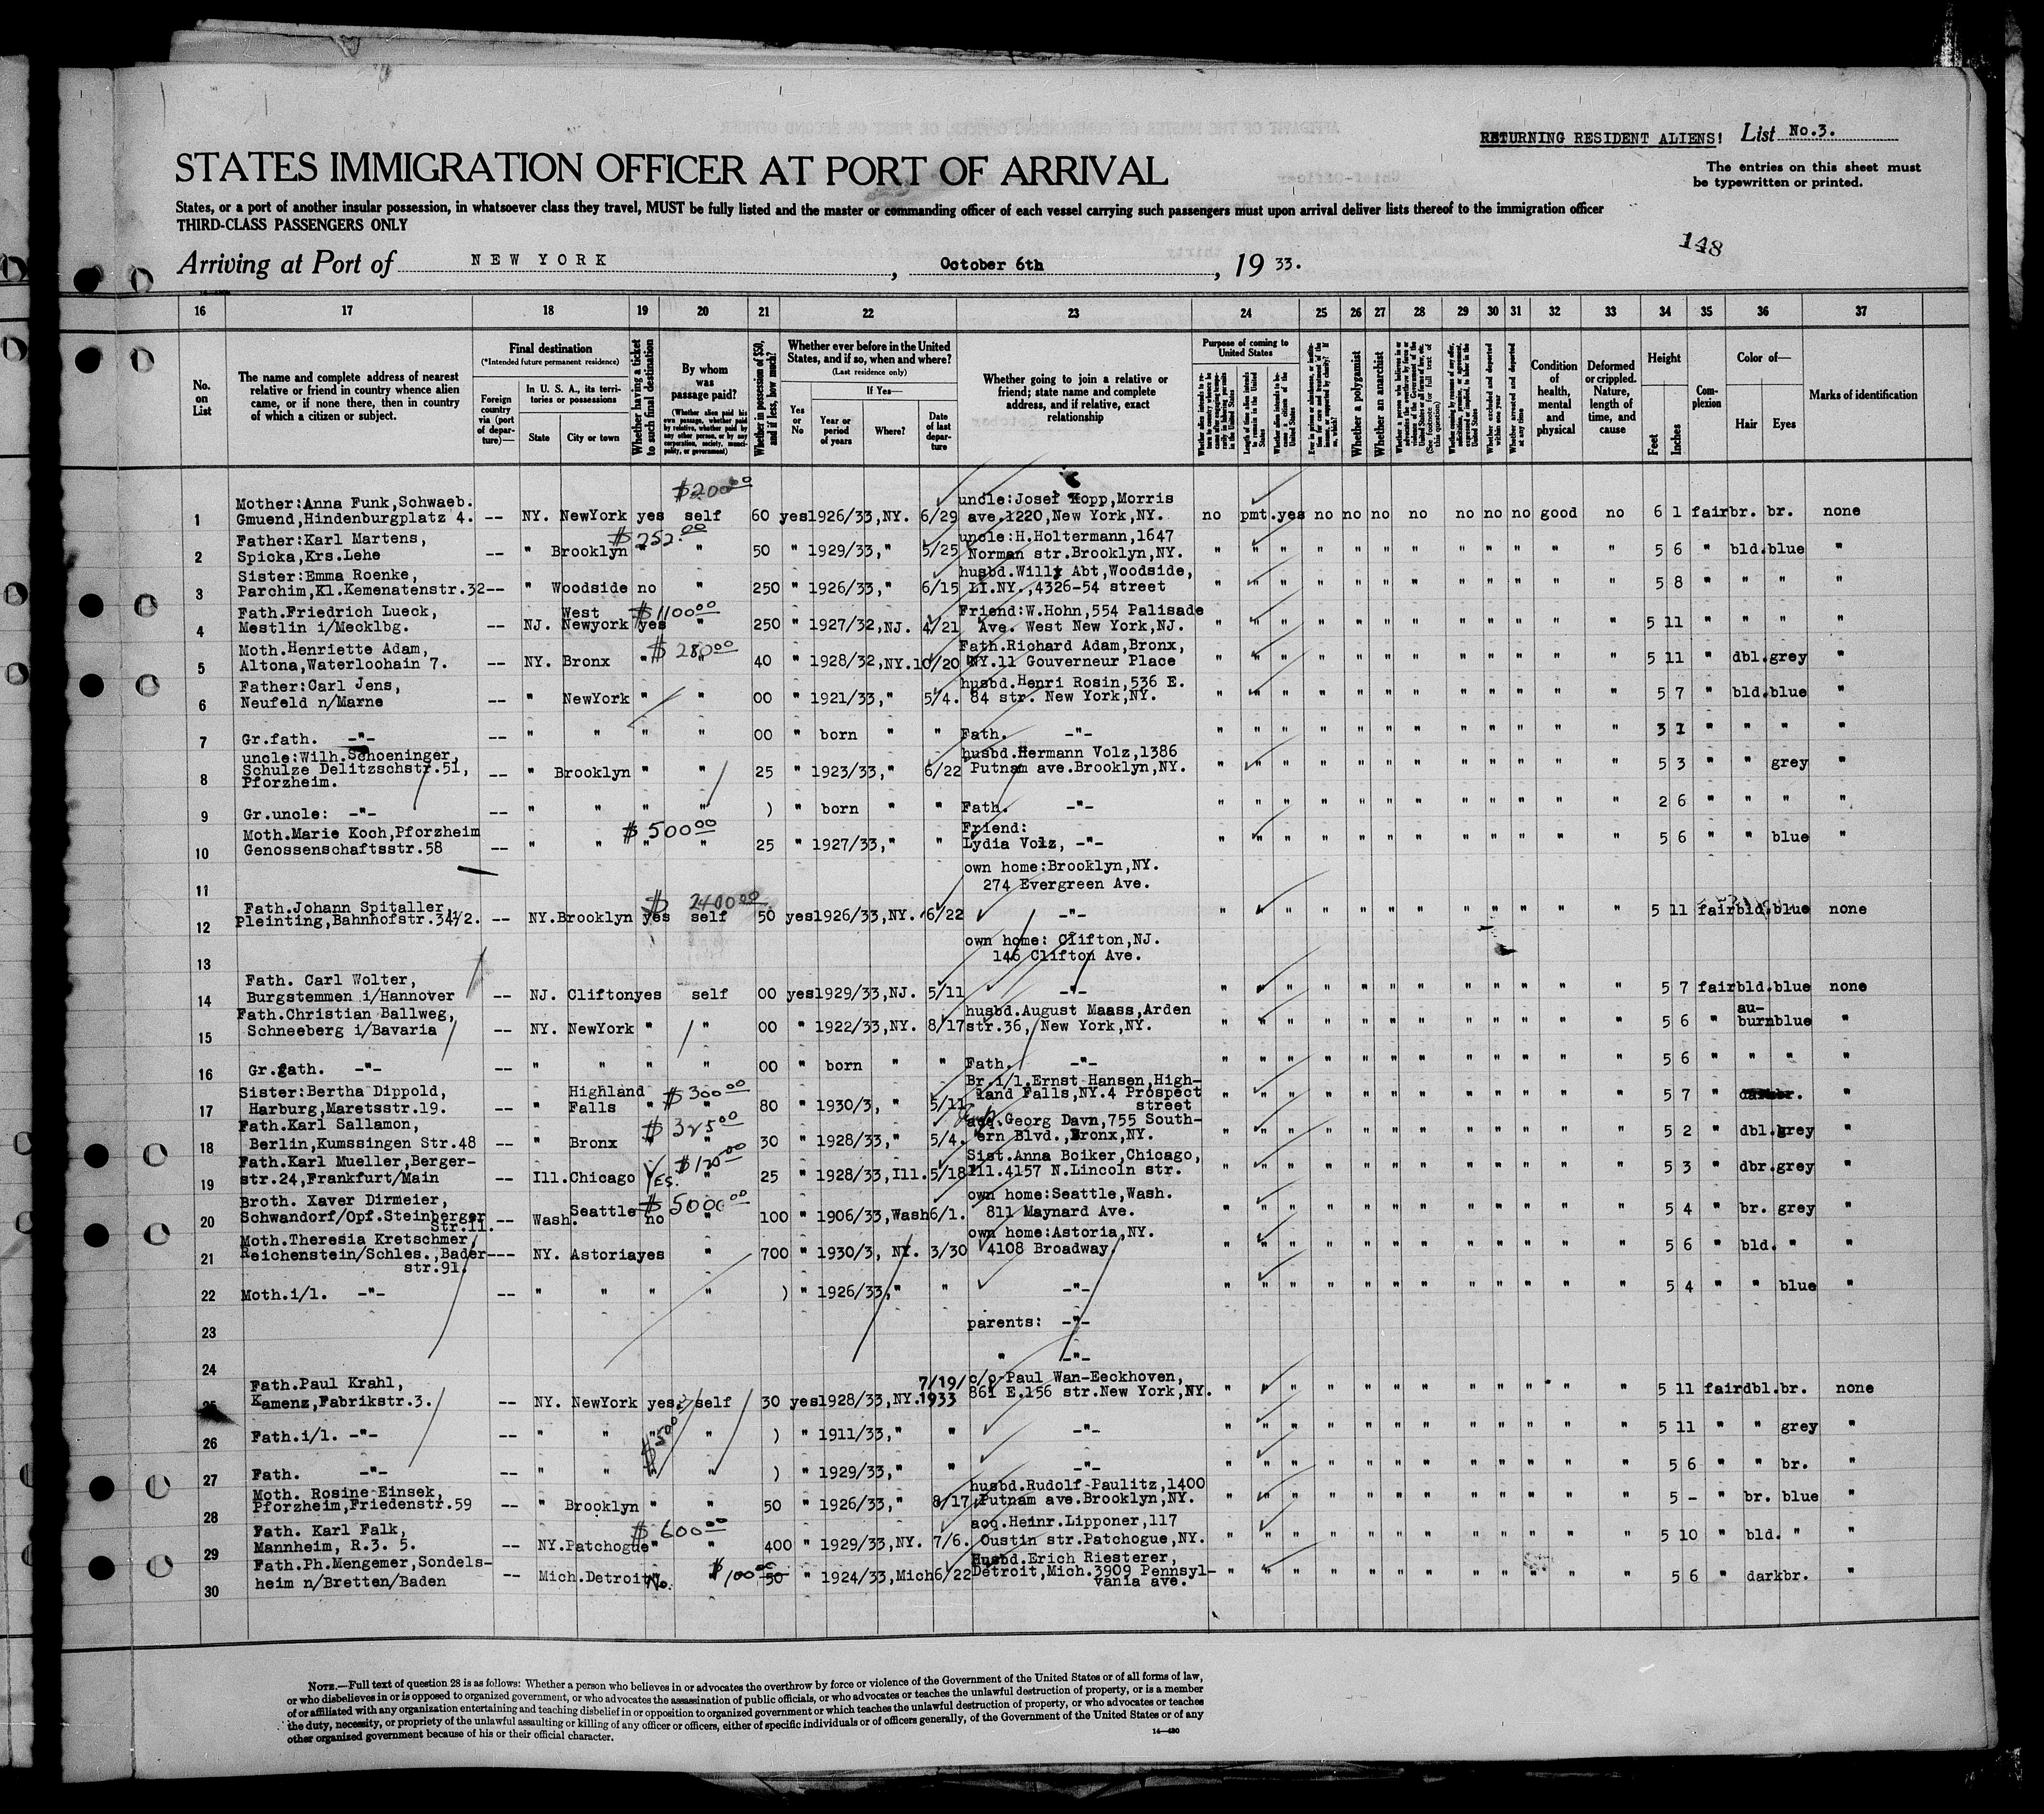 RETURNING RESIDENT ALIENS! List No.3.
STATES IMMIGRATION OFFICER AT PORT OF ARRIVAL
The entries on this sheet must
be typewritten or printed.
States, or a port of another insular possession, in whatsoever class they travel, MUST be fully listed and the master or commanding officer of each vessel carrying such passengers must upon arrival deliver lists thereof to the immigration officer
THIRD-CLASS PASSENGERS ONLY
148
Arriving at Port of NEW YORK, October 6th, 19 33.
16 17 18 19 20 21 22 23 24 25 26 27 28 29 30 31 32 33 34 35 36 37
No. on List
The name and complete address of nearest relative or friend in country whence alien came, or if none there, then in country of which a citizen or subject.
Final destination
(*Intended future permanent residence)
Foreign country via (port of departure)—
In U. S. A., its territories or possessions
State
City or town
Whether having a ticket to such final destination
By whom was passage paid?
(Whether alien paid his own passage, whether paid by relative, whether paid by any other person, or by any corporation, society, municipality, or government)
Whether in possession of $50, and if less, how much?
Whether ever before in the United States, and if so, when and where?
(Last residence only)
Yes or No
If Yes—
Year or period of years
Where?
Date of last departure
Whether going to join a relative or friend; state name and complete address, and if relative, exact relationship
Purpose of coming to United States
Whether a polygamist
Whether an anarchist
Condition of health, mental and physical
Deformed or crippled. Nature, length of time, and cause
Height
Feet
Inches
Complexion
Color of—
Hair
Eyes
Marks of identification
$200.00
Mother:Anna Funk,Schwaeb. uncle:Josef Kopp,Morris
1 Gmuend,Hindenburgplatz 4. -- NY. NewYork yes self 60 yes 1926/33,NY. 6/29 ave.1220,New York,NY. no pmt. yes no no no no no no no good no 6 1 fair br. br. none
$252.00
Father:Karl Martens, uncle:H.Holtermann,1647
2 Spicka,Krs.Lehe -- " Brooklyn " " 50 " 1929/33," 5/25 Norman str.Brooklyn,NY. " " " " " " " " " " " " 5 6 " bld. blue "
Sister:Emma Roenke, husbd.Willy Abt,Woodside,
3 Parchim,Kl.Kemenatenstr.32 -- " Woodside no " 250 " 1926/33," 6/15 LI.NY.,4326-54 street " " " " " " " " " " " " 5 8 " " " "
Fath.Friedrich Lueck, West $1100.00 Friend:W.Hohn,554 Palisade
4 Mestlin i/Mecklbg. -- NJ. Newyork yes " 250 " 1927/32,NJ. 4/21 Ave. West New York,NJ. " " " " " " " " " " " " 5 11 " " " "
$280.00
Moth.Henriette Adam, Fath.Richard Adam,Bronx,
5 Altona,Waterloohain 7. -- NY. Bronx " " 40 " 1928/32,NY. 10/20 NY.11 Gouverneur Place " " " " " " " " " " " " 5 11 " dbl. grey "
Father:Carl Jens, husbd.Henri Rosin,536 E.
6 Neufeld n/Marne -- " NewYork " " 00 " 1921/33," 5/4. 84 str. New York,NY. " " " " " " " " " " " " 5 7 " bld. blue "
7 Gr.fath. -"- -- " " " " 00 " born " " Fath. -"- " " " " " " " " " " " " 3 1 " " " "
uncle:Wilh.Schoeninger, husbd.Hermann Volz,1386
8 Schulze Delitzschstr.51, -- " Brooklyn " " 25 " 1923/33," 6/22 Putnam ave.Brooklyn,NY. " " " " " " " " " " " " 5 3 " " grey "
Pforzheim.
9 Gr.uncle: -"- -- " " " " ) " born " " Fath. -"- " " " " " " " " " " " " 2 6 " " " "
$500.00
Moth.Marie Koch,Pforzheim Friend:
10 Genossenschaftsstr.58 -- " " " " 25 " 1927/33," " Lydia Volz, -"- " " " " " " " " " " " " 5 6 " " blue "
own home:Brooklyn,NY.
11 274 Evergreen Ave.
$2400.00
Fath.Johann Spitaller,
12 Pleinting,Bahnhofstr.34½. -- NY. Brooklyn yes self 50 yes 1926/33,NY. 6/22 -"- " " " " " " " " " " " " 5 11 fair bld. blue none
own home: Clifton,NJ.
13 146 Clifton Ave.
Fath. Carl Wolter,
14 Burgstemmen i/Hannover -- NJ. Clifton yes self 00 yes 1929/33,NJ. 5/11 -"- " " " " " " " " " " " " 5 7 fair bld. blue none
Fath.Christian Ballweg, husbd.August Maass,Arden au-
15 Schneeberg i/Bavaria -- NY. NewYork " " 00 " 1922/33,NY. 8/17 str.36, New York,NY. " " " " " " " " " " " " 5 6 " burn blue "
16 Gr.gath. -"- -- " " " " 00 " born " " Fath. -"- " " " " " " " " " " " " 5 6 " " " "
Sister:Bertha Dippold, Highland $300.00 Br.i/l.Ernst Hansen,High-
17 Harburg,Maretsstr.19. -- " Falls " " 80 " 1930/3, " 5/11 land Falls,NY.4 Prospect street " " " " " " " " " " " " 5 7 " br. "
$325.00
Fath.Karl Sallamon, Georg Davn,755 South-
18 Berlin,Kumssingen Str.48 -- " Bronx " " 30 " 1928/33," 5/4. ern Blvd.,Bronx,NY. " " " " " " " " " " " " 5 2 " dbl. grey "
$120.00
Fath.Karl Mueller,Berger- Sist.Anna Boiker,Chicago,
19 str.24,Frankfurt/Main -- Ill. Chicago Yes. " 25 " 1928/33,Ill. 5/18 Ill.4157 N.Lincoln str. " " " " " " " " " " " " 5 3 " dbr. grey "
$5000.00
Broth. Xaver Dirmeier, own home:Seattle,Wash.
20 Schwandorf/Opf.Steinberger Str.11. -- Wash. Seattle no " 100 " 1906/33,Wash 6/1. 811 Maynard Ave. " " " " " " " " " " " " 5 4 " br. grey "
Moth.Theresia Kretschmer, own home:Astoria,NY.
21 Reichenstein/Schles.,Bader- str.91. -- NY. Astoria yes " 700 " 1930/3, NY. 3/30 4108 Broadway. " " " " " " " " " " " " 5 6 " bld. " "
22 Moth.i/l. -"- -- " " " " ) " 1926/33," " -"- " " " " " " " " " " " " 5 4 " " blue "
23 parents: -"-
24 " -"-
Fath.Paul Krahl, 7/19/ c/o Paul Wan-Eeckhoven,
25 Kamenz,Fabrikstr.3. -- NY. NewYork yes self 30 yes 1928/33,NY. 1933 861 E.156 str.New York,NY. " " " " " " " " " " " " 5 11 fair dbl. br. none
26 Fath.i/l. -"- -- " " " " ) " 1911/33," " -"- " " " " " " " " " " " " 5 11 " " grey "
27 Fath. -"- -- " " " " ) " 1929/33," " -"- " " " " " " " " " " " " 5 6 " " br. "
Moth. Rosine Einsek, husbd.Rudolf Paulitz,1400
28 Pforzheim,Friedenstr.59 -- " Brooklyn " " 50 " 1926/33," 8/17 Putnam ave.Brooklyn,NY. " " " " " " " " " " " " 5 - " br. blue "
$600.00
Fath. Karl Falk, acq.Heinr.Lipponer,117
29 Mannheim, R.3. 5. -- NY. Patchogue " " 400 " 1929/33,NY. 7/6. Oustin str.Patchogue,NY. " " " " " " " " " " " " 5 10 " bld. " "
Fath.Ph.Mengemer,Sondels- $100.00 Husbd.Erich Riesterer,
30 heim n/Bretten/Baden -- Mich. Detroit No. 50 " 1924/33,Mich 6/22 Detroit,Mich.3909 Pennsyl- vania ave. " " " " " " " " " " " " 5 6 " dark br. "
NOTE.—Full text of question 28 is as follows: Whether a person who believes in or advocates the overthrow by force or violence of the Government of the United States or of all forms of law,
or who disbelieves in or is opposed to organized government, or who advocates the assassination of public officials, or who advocates or teaches the unlawful destruction of property, or is a member
of or affiliated with any organization entertaining and teaching disbelief in or opposition to organized government or which teaches the unlawful destruction of property, or who advocates or teaches
the duty, necessity, or propriety of the unlawful assaulting or killing of any officer or officers, either of specific individuals or of officers generally, of the Government of the United States or of any
other organized government because of his or their official character.
14—430